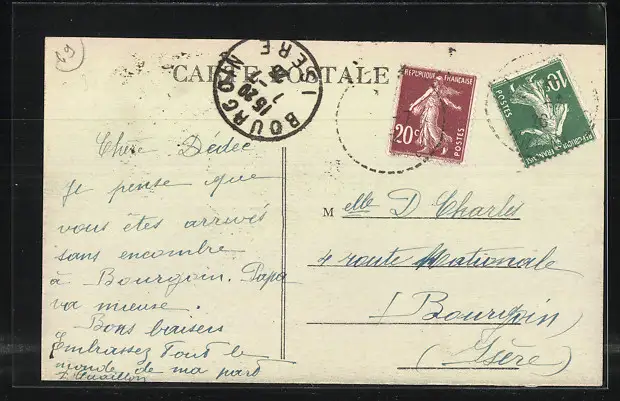 69
CARTE POSTALE
BOURGOIN
15 20
7-7
ISERE
REPUBLIQUE FRANÇAISE
20c
POSTES
10c
POSTES
REPUBLIQUE FRANÇAISE
Chère Dédée
Je pense que
vous êtes arrivés
sans encombre
à Bourgoin. Papa
va mieux.
Bons baisers
Embrassez tout le
monde de ma part
Melle D Charles
4 route Nationale
(Bourgoin)
(Isère)